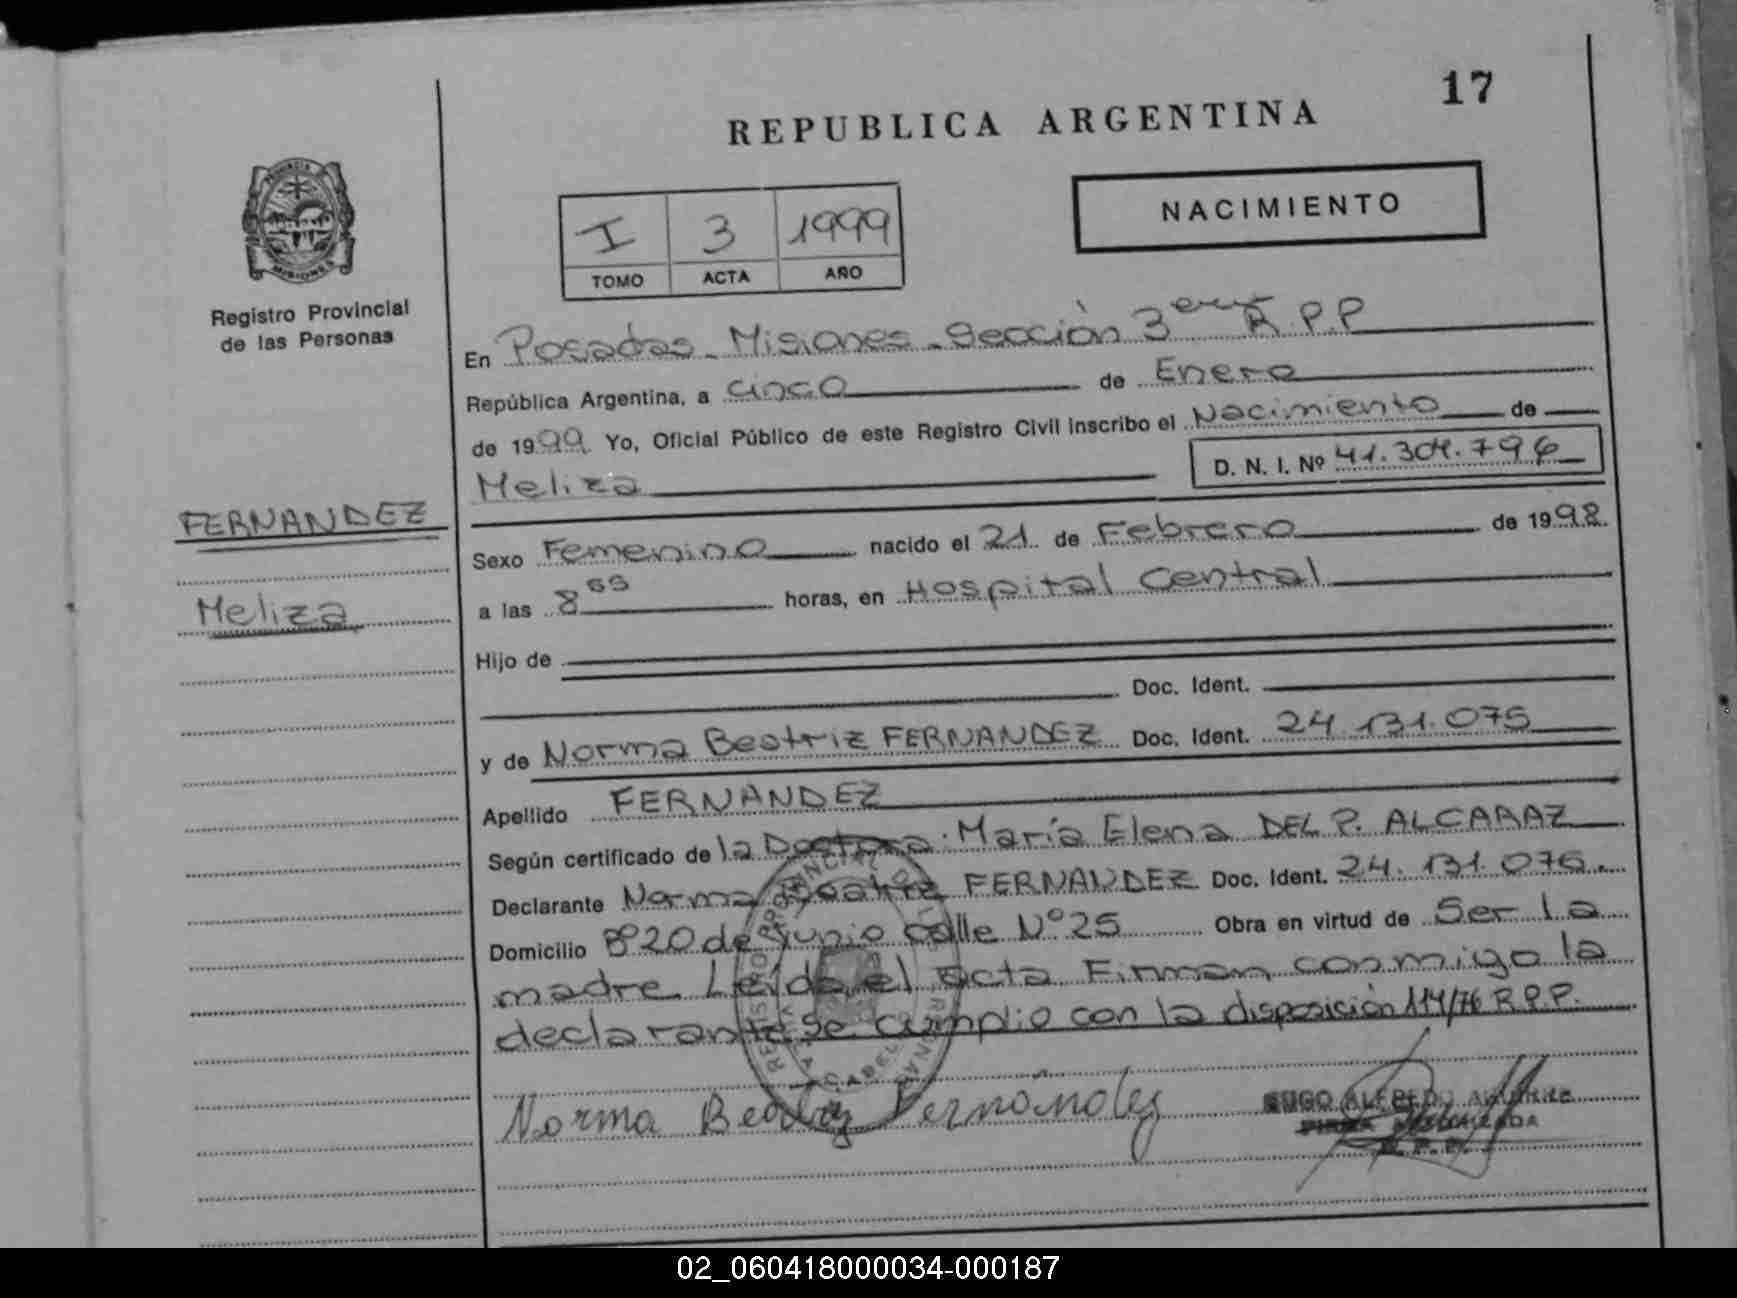 17
REPUBLICA ARGENTINA
NACIMIENTO
I 3 1999
TOMO ACTA AÑO
PROVINCIA
MISIONES
Registro Provincial
de las Personas
En Posadas - Misiones - Sección 3era R.P.P
República Argentina, a cinco de Enero
de 1999. Yo, Oficial Público de este Registro Civil inscribo el Nacimiento de
Meliza
D. N. I. Nº 41.304.796
FERNANDEZ
Meliza
Sexo Femenino nacido el 21 de Febrero de 1998.
a las 8 55 horas, en Hospital Central
Hijo de
Doc. Ident.
y de Norma Beatriz FERNANDEZ Doc. Ident. 24.131.075
Apellido FERNANDEZ
Según certificado de la Doctora. María Elena DEL P. ALCARAZ
Declarante Norma Beatriz FERNANDEZ Doc. Ident. 24.131.075.
Domicilio Bº 20 de Junio calle Nº 25 Obra en virtud de Ser la
madre. Leída el acta Firman conmigo la
declarante se cumplio con la disposición 114/76 R.P.P.
Norma Beatriz Fernández
HUGO ALFREDO
R.P.P.
02_060418000034-000187